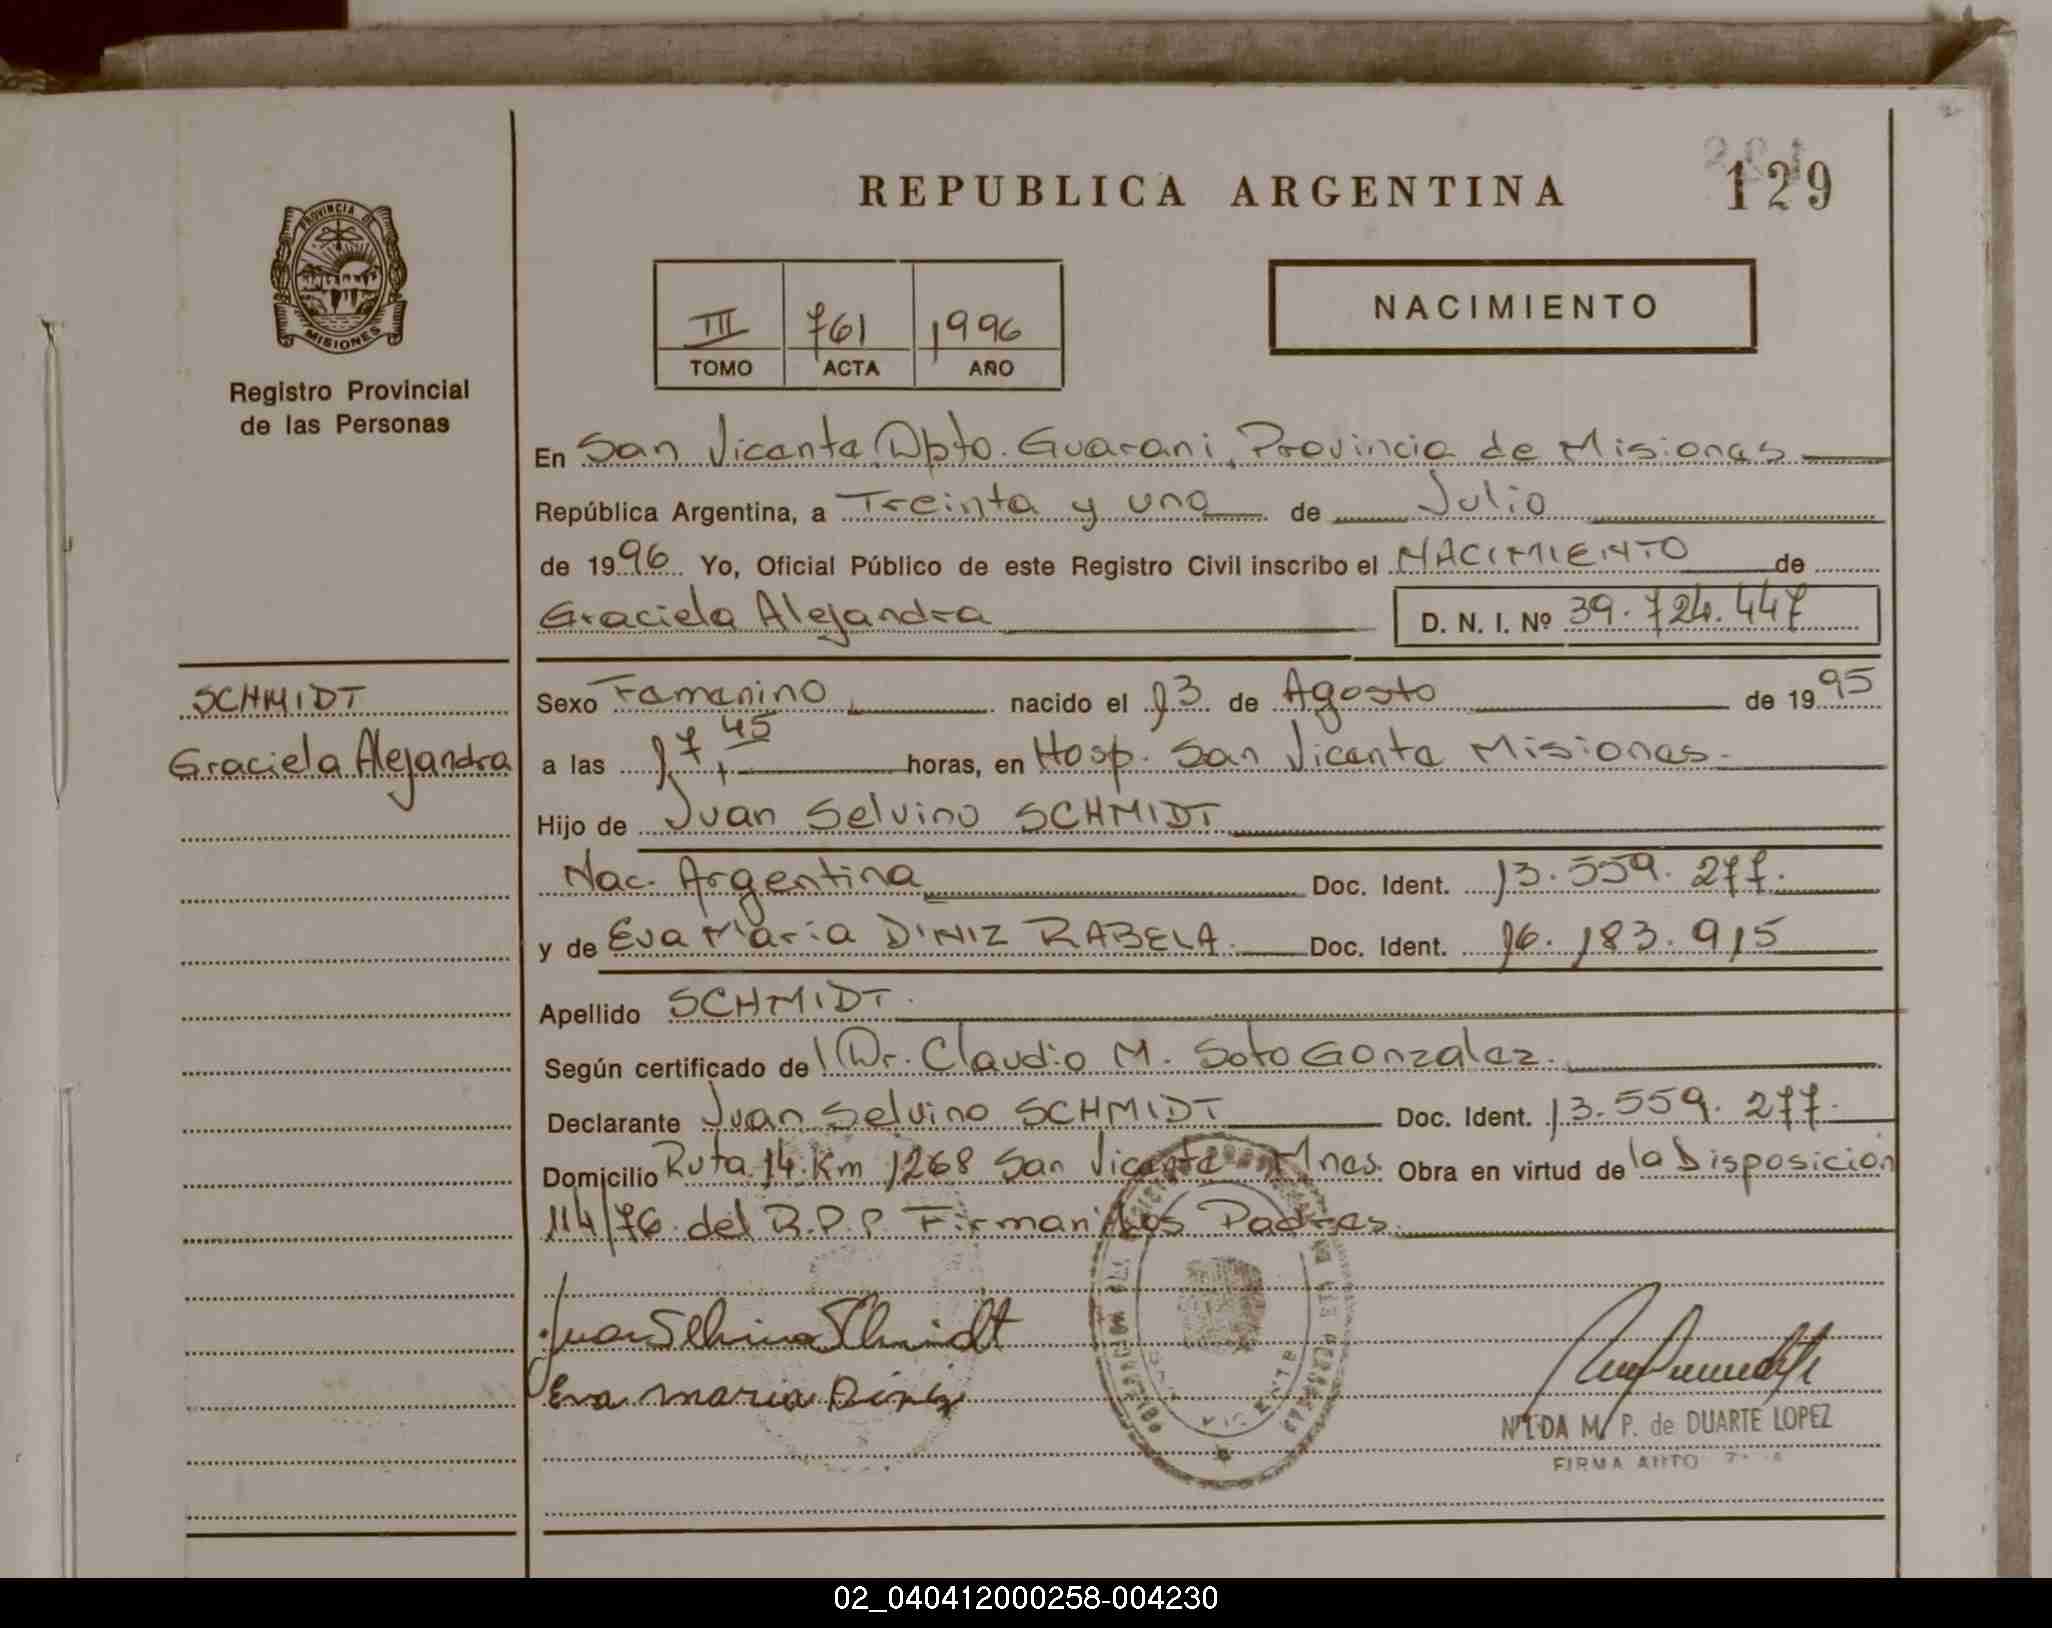 REPUBLICA ARGENTINA
129
PROVINCIA DE
MISIONES
Registro Provincial
de las Personas
III 761 1996
TOMO ACTA AÑO
NACIMIENTO
En San Vicente, Dpto. Guarani, Provincia de Misiones
República Argentina, a Treinta y uno de Julio
de 1996 Yo, Oficial Público de este Registro Civil inscribo el NACIMIENTO de
Graciela Alejandra D. N. I. Nº 39.724.447
SCHMIDT
Graciela Alejandra
Sexo Femenino nacido el 13 de Agosto de 1995
a las 17,45 horas, en Hosp. San Vicente Misiones.
Hijo de Juan Selvino SCHMIDT
Nac. Argentina Doc. Ident. 13.559.277.
y de Eva Maria DINIZ RABELA. Doc. Ident. 16.183.915
Apellido SCHMIDT.
Según certificado de Dr. Claudio M. Soto Gonzalez.
Declarante Juan Selvino SCHMIDT Doc. Ident. 13.559.277.
Domicilio Ruta 14 Km 1268 San Vicente Mnes. Obra en virtud de la Disposicion
114/76 del R.P.P. Firman los Padres.
Juan Selvino Schmidt
Eva maria Diniz
VICENTE
NILDA M. P. de DUARTE LOPEZ
FIRMA AUTO
02_040412000258-004230